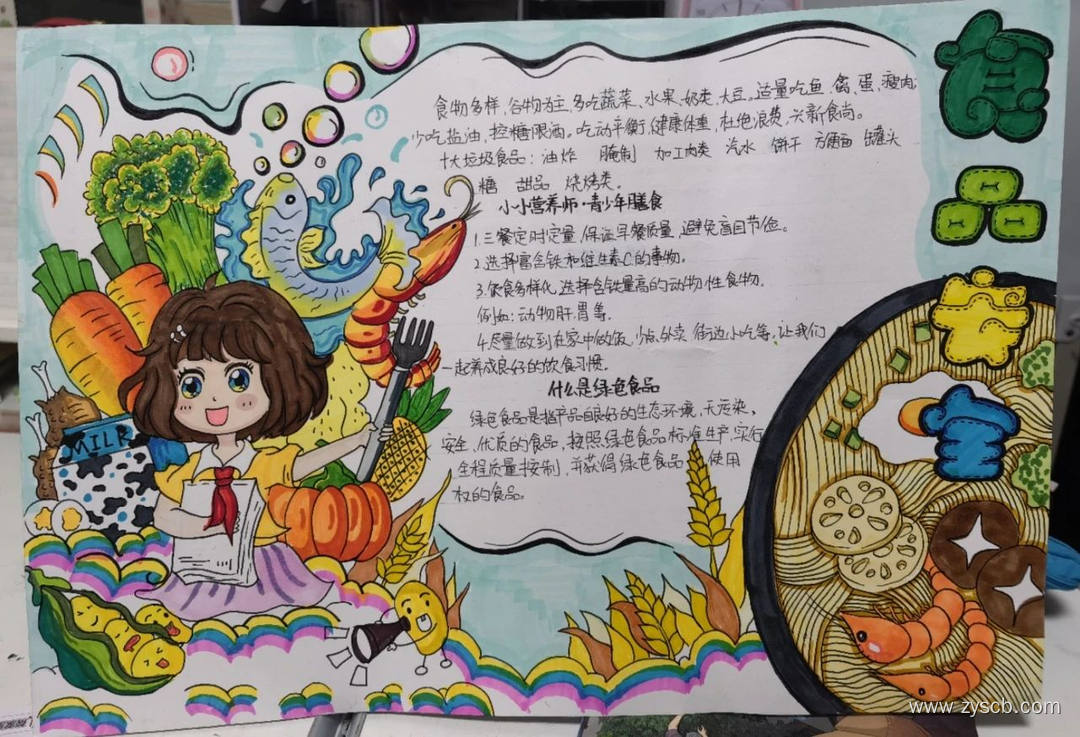 食品安全
食物多样,谷物为主,多吃蔬菜、水果、奶类、大豆。适量吃鱼、禽、蛋、瘦肉,
少吃盐油,控糖限酒。吃动平衡,健康体重,杜绝浪费,兴新食尚。
十大垃圾食品:油炸 腌制 加工肉类 汽水 饼干 方便面 罐头
糖 甜品 烧烤类。
小小营养师·青少年膳食
1.三餐定时定量,保证早餐质量,避免盲目节俭。
2.选择富含铁和维生素C的事物。
3.饮食多样化,选择含铁量高的动物性食物。
例如:动物肝、胃等。
4.尽量做到在家中做饭,少点外卖 街边小吃等,让我们
一起养成良好的饮食习惯。
什么是绿色食品
绿色食品是指产品自良好的生态环境,无污染,
安全、优质的食品,按照绿色食品标准生产,实行
全程质量控制,并获得绿色食品 使用
权的食品。
MILK
www.zyscb.com